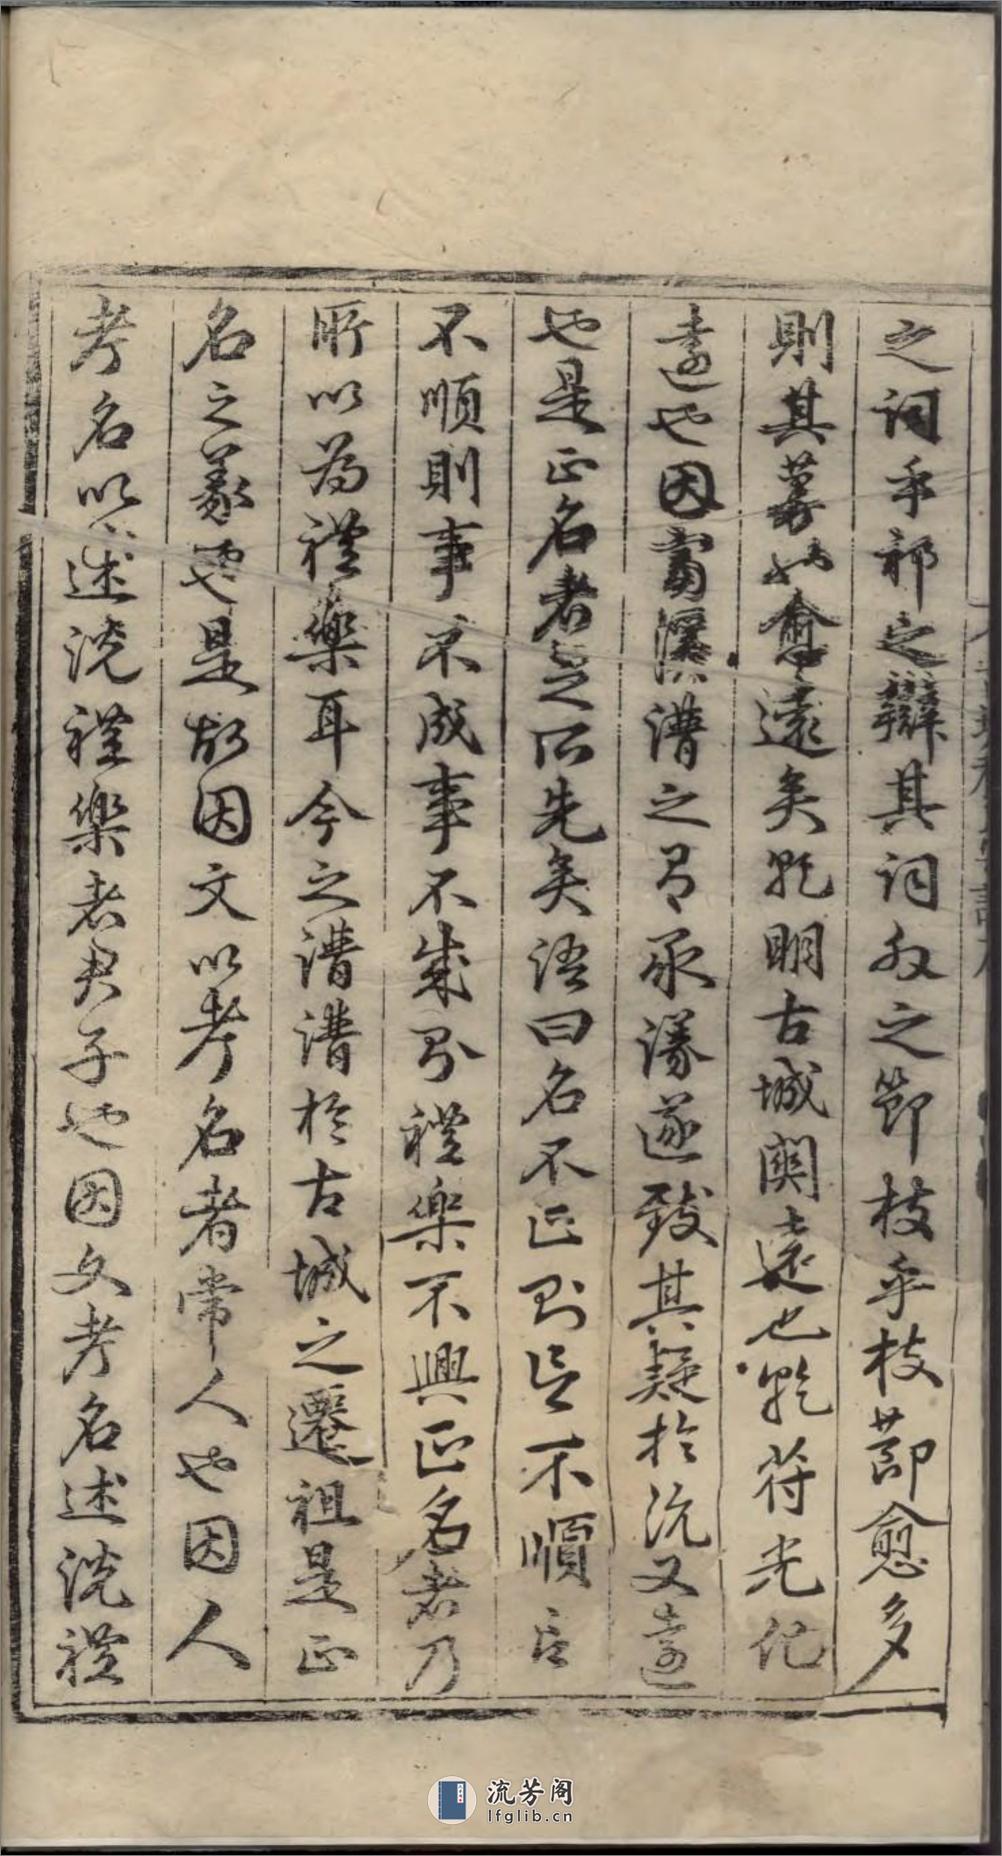 之詞乎祁之辯其詞
之節枝乎枝節愈多
則其
愈遠矣
明古城闕遠也
符光化
遠也因
溪漕之
承
遂致其疑於沅又遠
也是正名者是之所先矣語曰名不正則言不順言
不順則事不成事不成則禮樂不興正名者乃
所以為禮樂耳今之漕漕於古城之遷祖是正
名之義也是故因文以考名者常人也因人
考名以述洗禮樂者君子也因文考名述洗禮
流芳阁
lfglib.cn